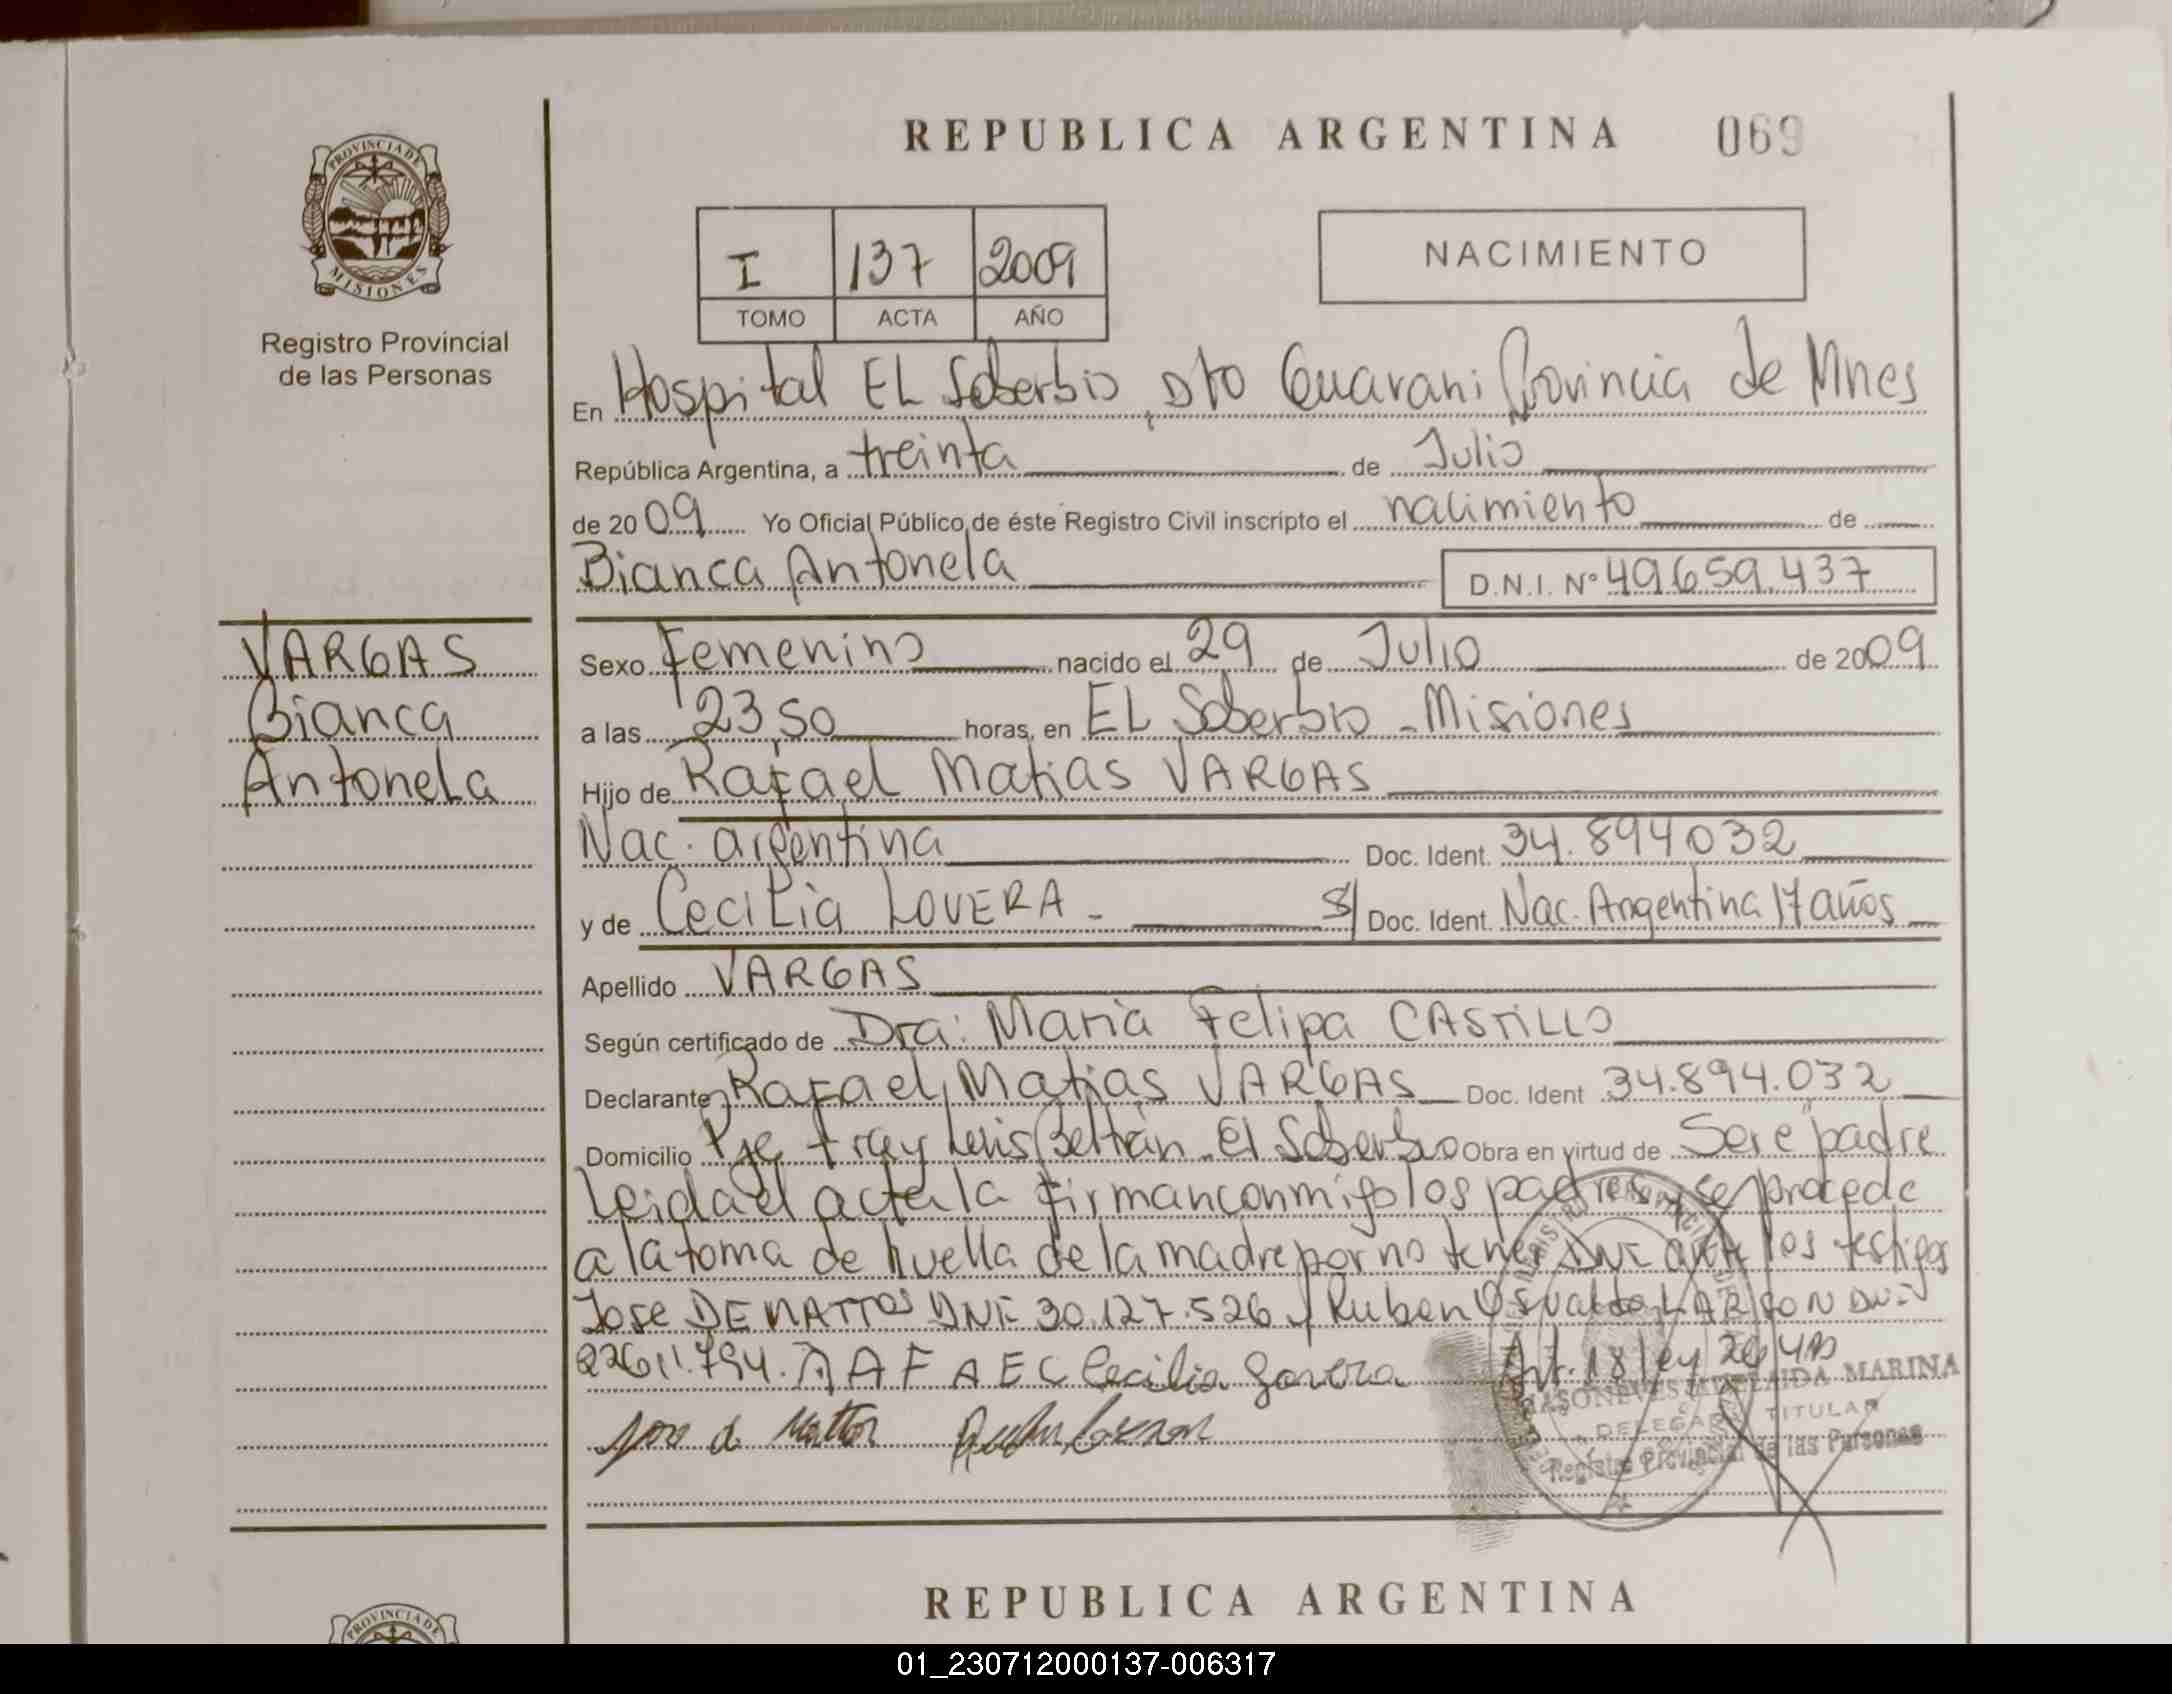 REPUBLICA ARGENTINA 069
PROVINCIA DE
MISIONES
Registro Provincial
de las Personas
I 137 2009
TOMO ACTA AÑO
NACIMIENTO
En Hospital EL Soberbio, Dto Guarani Provincia de Mnes
República Argentina, a treinta de Julio
de 2009 Yo Oficial Público de éste Registro Civil inscripto el nacimiento de
Bianca Antonela D.N.I. Nº 49.659.437
VARGAS
Bianca
Antonela
Sexo Femenino nacido el 29 de Julio de 2009
a las 23,50 horas, en EL Soberbio - Misiones
Hijo de Rafael Matias VARGAS
Nac. argentina Doc. Ident. 34.894032
y de Cecilia LOVERA - S/ Doc. Ident. Nac. Argentina 17 años
Apellido VARGAS
Según certificado de Dra: Maria Felipa CASTILLO
Declarante Rafael Matias VARGAS Doc. Ident 34.894.032
Domicilio Pje Fray Luis Beltrán - El Soberbio Obra en virtud de Ser e padre
Leida el acta la firman conmigo los padres y se procede
a la toma de huella de la madre por no tener DNI ante los testigos
Jose DE MATTOS DNI 30.127.526 y Ruben Osvaldo LARSON DNI
22611.794. RAFAEL Cecilia Lovera Art. 18 ley
Jose d. Mattos
ADELAIDA MARINA
DELEGADA TITULAR
Registro Provincial de las Personas
REPUBLICA ARGENTINA
PROVINCIA DE
01_230712000137-006317